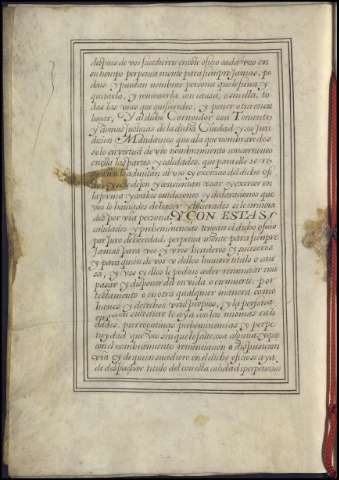 despues de vos sucediere en el dho oficio cada vno en
su tiempo perpetua mente para siempre Jamas, po
dais y puedan nombrar persona que le sirua, y
quitarla, y remoberla con causa, o sin ella, to
das las veces que quisieredes, y poner otra en su
lugar, Y al dicho Corregidor o su Teniente
y a otras Justicias de la dicha Ciudad y su Juris
dicion Mandamos que a la que nombraredes
solo en virtud de vro nombramiento concurriendo
en ella las partes y calidades, que para ello se re
quieren le admitan al vso y exercicio del dicho ofi
cio y se le dejen y consientan vsar y exercer en
la forma y con las condiciones y declaraciones que
vos le haueis de hacer
des por vra persona, Y CON ESTAS
calidades y preheminencias tengais el dicho oficio
por juro de heredad, perpetua mente para siempre
Jamas para vos y vros herederos y sucesores
y para quien de vos o dellos huuiere titulo o cau
sa, y vos y ellos le podais ceder renunciar tras
pasar y disponer del en vida o en muerte, por
testamento o en otra qualquier manera como
bienes y derechos vros propios, y la persona
en quien sucediere le aya con las mismas cali
dades, prerrogatiuas, preheminencias y perpe
tuydad que vos sin que le falte cosa alguna, y que
con el nombramiento renunciacion o disposicion
vra y de quien sucediere en el dicho oficio se aya
de despachar titulo del con esta calidad y perpetuydad